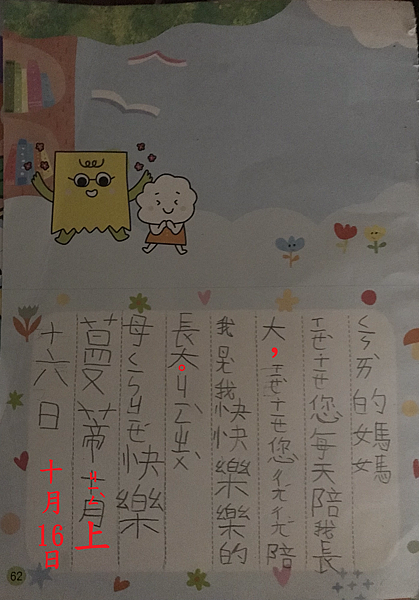 ㄑㄧㄣㄞˋ的媽媽
ㄒㄧㄝˋㄒㄧㄝ您每天陪我長
大，ㄒㄧㄝˋㄒㄧㄝ您ㄔㄤˊㄔㄤˊ陪
我是我快快樂樂的
長大。ㄓㄨˋ
母ㄑㄧㄣㄐㄧㄝ快樂
蔓蒂上
十六日十月16日
62